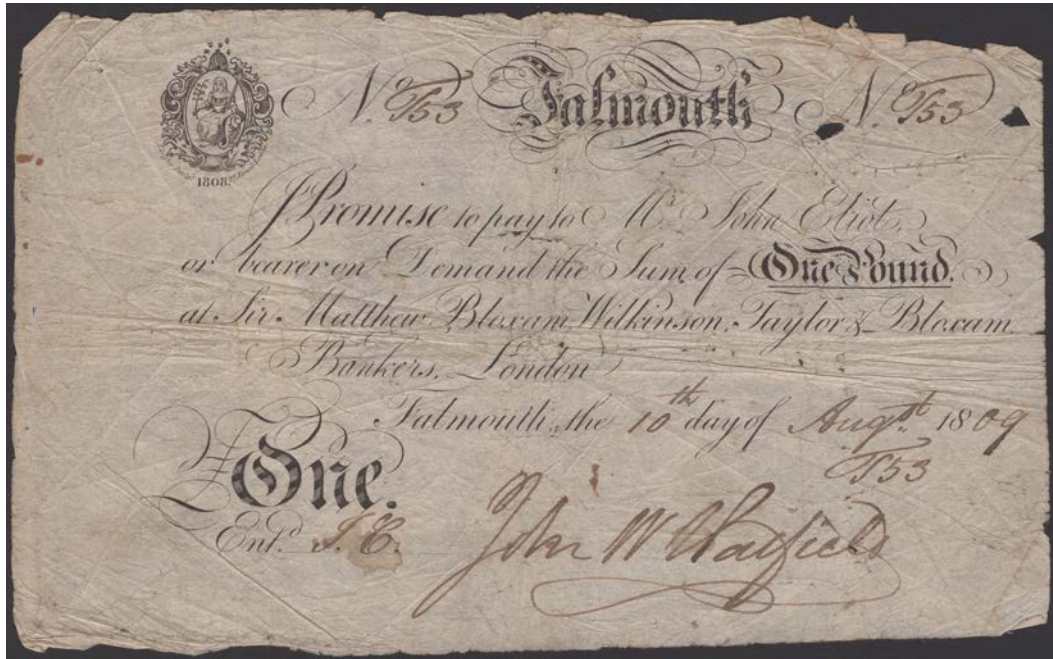 No T53 Falmouth No T53
1808
I Promise to pay to Mr John Eliot,
or bearer on Demand the Sum of One Pound.
at Sir Matthew Bloxam, Wilkinson, Taylor & Bloxam
Bankers, London
Falmouth, the 10th day of Augst. 1809
T53
£One.
Entd. J.E. John W Hatfield